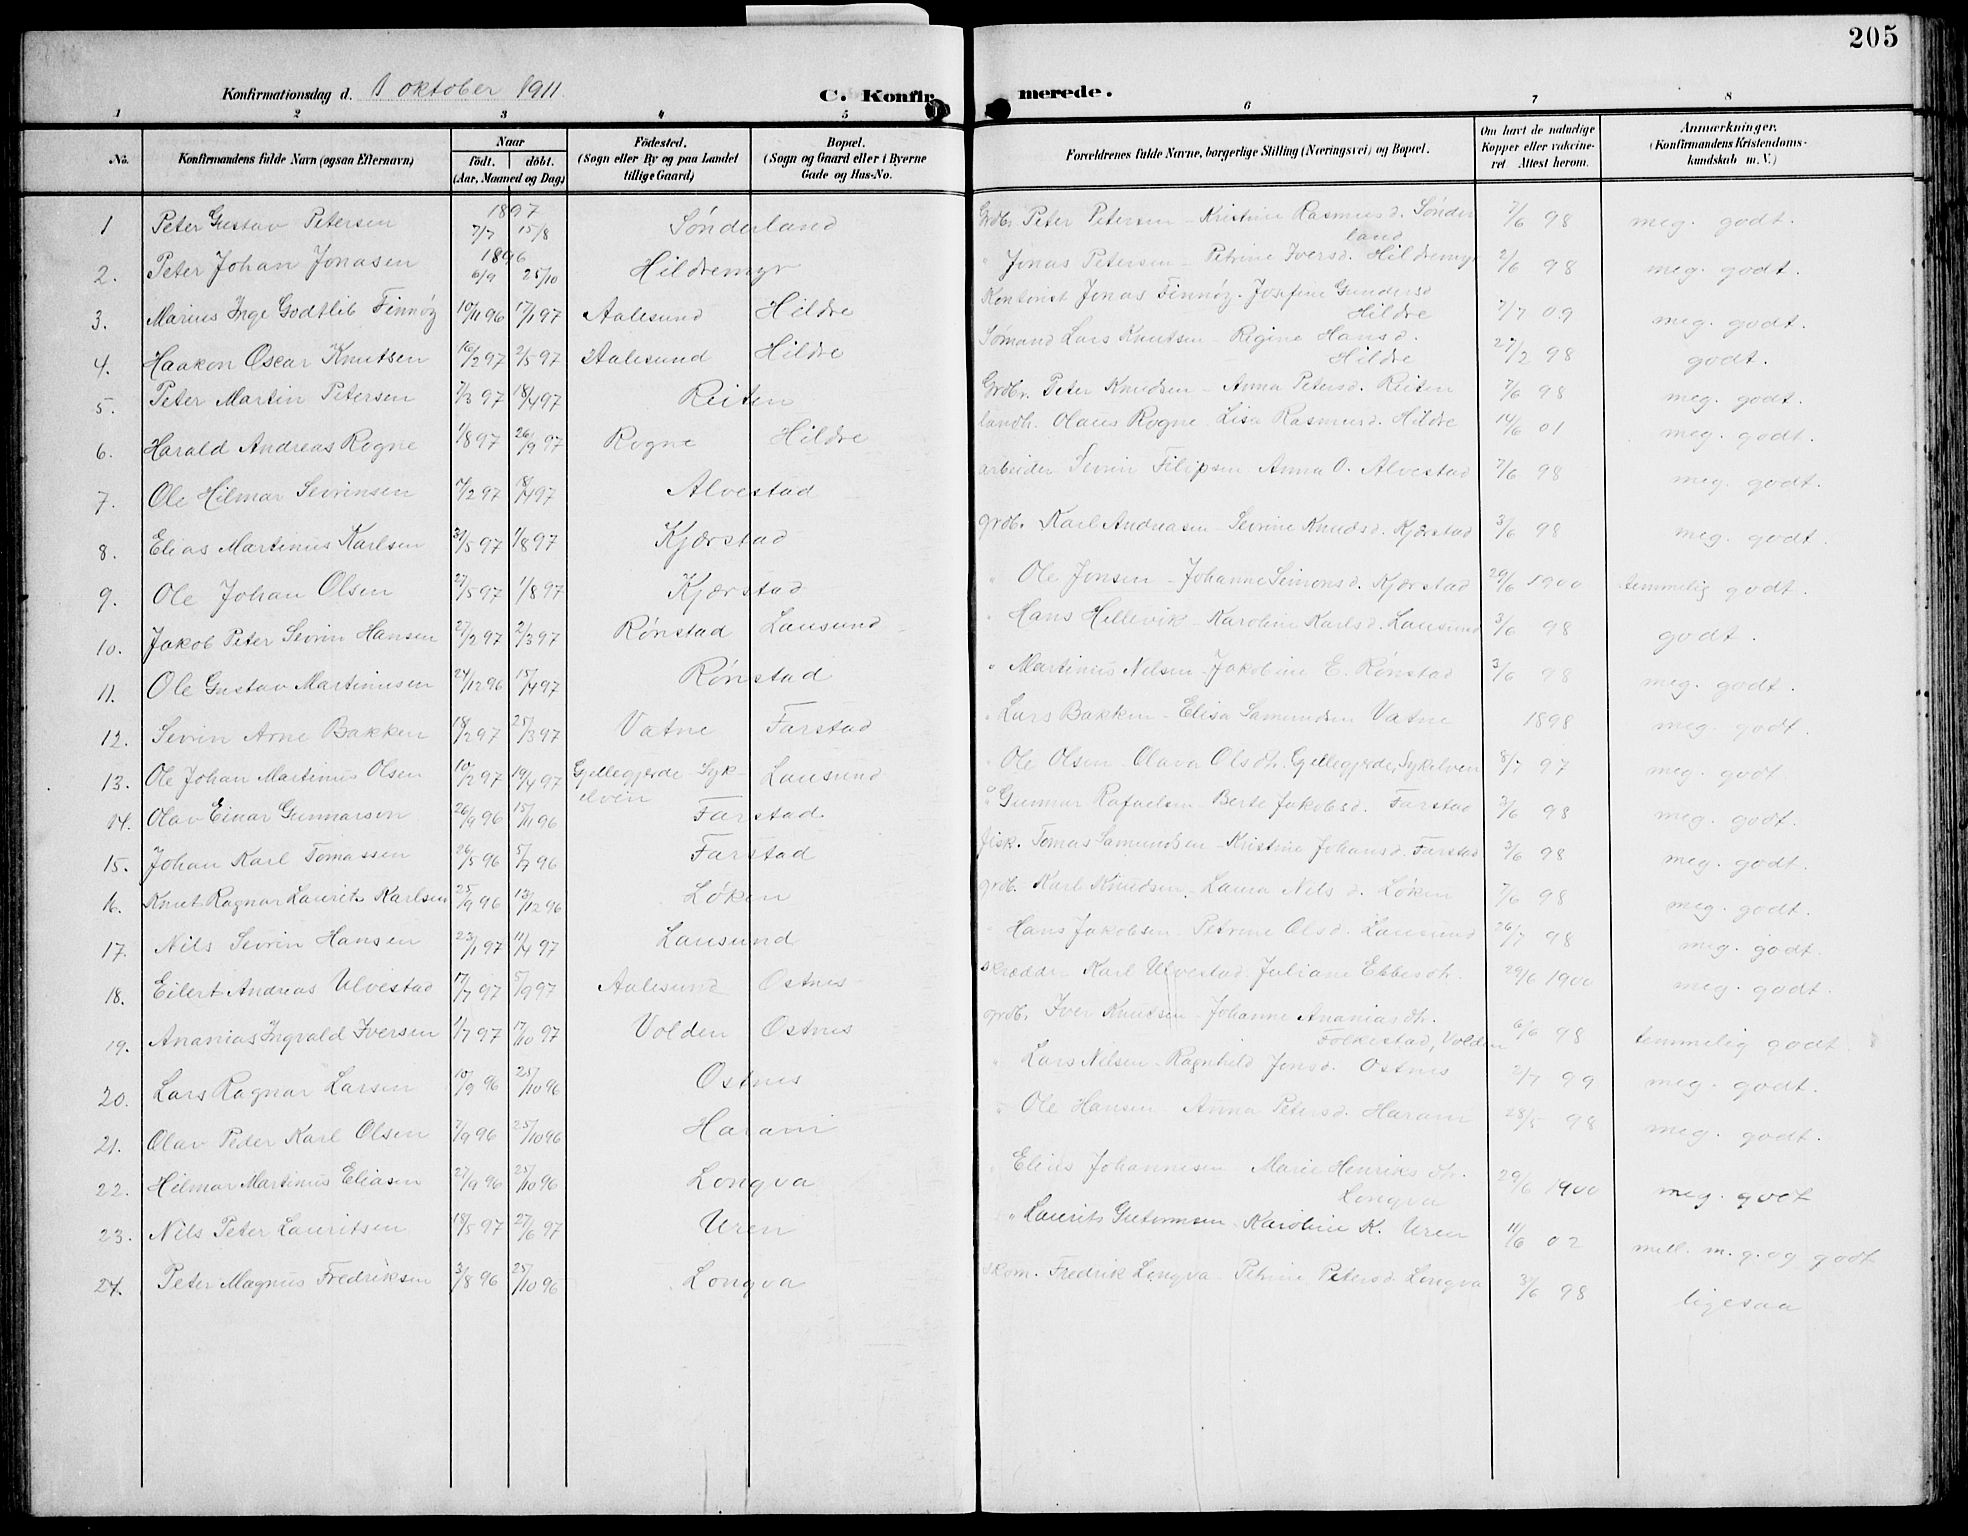 205
Konfirmationsdag d. 1 oktober 1911. C. Konfirmerede.
1 2 3 4 5 6 7 8
No. Konfirmandens fulde Navn (ogsaa Efternavn) Naar födt. döbt. (Aar, Maaned og Dag) Födested. (Sogn eller By og paa Landet tillige Gaard) Bopæl. (Sogn og Gaard eller i Byerne Gade og Hus-No. Forældrenes fulde Navne, borgerlige Stilling (Næringsvei) og Bopæl. Om havt de naturlige Kopper eller vakcineret Attest herom. Anmærkninger. (Konfirmandens Kristendomskundskab m. V.)
1 Peter Gustav Petersen 1897 7/7 15/8 Sønderland Grdbr. Peter Petersen - Kristine Rasmusd. Sønderland 7/6 98 meg. godt.
2. Peter Johan Jonasen 1896 6/9 25/10 Hildremyr " Jonas Petersen - Petrine Iversd. Hildremyr 2/6 98 meg. godt.
3. Marius Inge Godtlib Finnöy 10/11 96 17/1 97 Aalesund Hildre Kontorist Jonas Finnöy - Josefine Gundersd Hildre 7/7 09 meg. godt.
4. Haakon Oscar Knutsen 16/2 97 2/5 97 Aalesund Hildre Sømand Lars Knutsen - Regine Hansd. Hildre 27/2 98 godt.
5. Peter Martin Petersen 7/3 97 18/4 97 Reiten Grdbr. Peter Knudsen - Anna Petersd. Reiten 7/6 98 meg. godt.
6. Harald Andreas Rogne 1/8 97 26/9 97 Rogne Hildre landh. Olaus Rogne - Lisa Rasmusd. Hildre 14/6 01 meg. godt.
7. Ole Hilmar Sevrinsen 4/2 97 18/4 97 Alvestad arbeider Sevrin Filipsen - Anna O. Alvestad 7/6 98 meg. godt.
8. Elias Martinus Karlsen 31/5 97 1/8 97 Kjærstad grdb. Karl Andreasen - Sevrine Knudsd. Kjærstad 3/6 98 meg. godt.
9. Ole Johan Olsen 27/5 97 1/8 97 Kjærstad " Ole Jonsen - Johanne Simonsd. Kjærstad 29/6 1900 temmelig godt.
10. Jakob Peter Sevrin Hansen 27/2 97 2/3 97 Rønstad Lausund " Hans Hellevik - Karoline Karlsd. Lausund 3/6 98 godt.
11. Ole Gustav Martinusen 24/12 96 15/4 97 Rønstad " Martinus Nilsen - Jakobine E. Rønstad 3/6 98 meg. godt.
12. Sevrin Arne Bakken 18/2 97 25/3 97 Vatne Farstad " Lars Bakken - Elisa Samundsen Vatne 1898 meg. godt.
13. Ole Johan Martinus Olsen 10/2 97 19/4 97 Gjellegjerde Sykelven Lausund " Ole Olsen - Olava Olsdtr. Gjellegjerde, Sykelven 8/7 97 meg. godt
14. Olav Einar Gunnarson 26/9 96 15/11 96 Farstad " Gunnar Rafaelsen - Berte Jakobsd. Farstad 3/6 98 meg. godt.
15. Johan Karl Tomassen 26/5 96 5/7 96 Farstad fisk. Tomas Samundsen - Kristine Johansd. Farstad 3/6 98 meg. godt.
16. Knut Ragnar Laurits Karlsen 25/9 96 13/12 96 Løken grdb. Karl Knudsen - Laura Nilsd. Løken 7/6 98 meg. godt.
17. Nils Sevrin Hansen 23/1 97 11/4 97 Lausund " Hans Jakobsen - Petrine Olsd. Lausund 26/7 98 meg. godt.
18. Eilert Andreas Ulvestad 17/7 97 5/9 97 Aalesund Ostnes skrædder Karl Ulvestad - Juliane Ebbesdtr. 29/6 1900 meg. godt.
19. Ananias Ingvald Iversen 1/7 97 17/10 97 Volden Ostnes grdb. Iver Knutsen - Johanne Ananiasdtr. Folkestad, Volden 6/6 98 temmelig godt.
20. Lars Ragnar Larsen 10/9 96 25/10 96 Ostnes " Lars Nilsen - Ragnhild Jonsd. Ostnes 2/7 99 meg. godt.
21. Olav Peder Karl Olsen 7/9 96 25/10 96 Haram " Ole Hansen - Anna Petersd. Haram 28/5 98 meg. godt.
22. Hilmar Martinus Eliasen 27/9 96 25/10 96 Longva " Elias Johannesen - Marie Henriksdtr. Longva 29/6 1900 meg. godt
23. Nils Peter Lauritsen 18/5 97 27/6 97 Uren " Laurits Guttormsen - Karoline K. Uren 11/6 02 mell. m. g. og godt
24. Peter Magnus Fredriksen 3/8 96 25/10 96 Longva skom. Fredrik Longva - Petrine Petersd. Longva 3/6 98 ligesaa